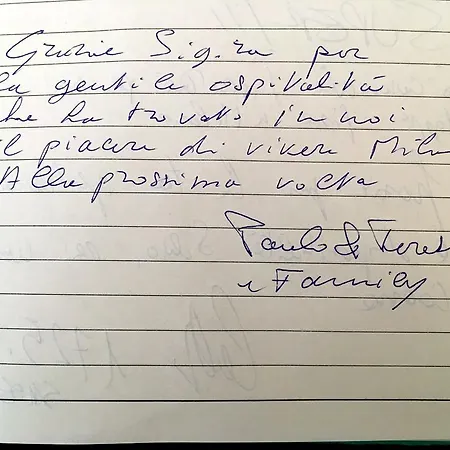 Grazie Sig.ra per
la gentile ospitalità
che ha trovato in noi
il piacere di vivere Mila
Alla prossima volta
Paolo &
e Family